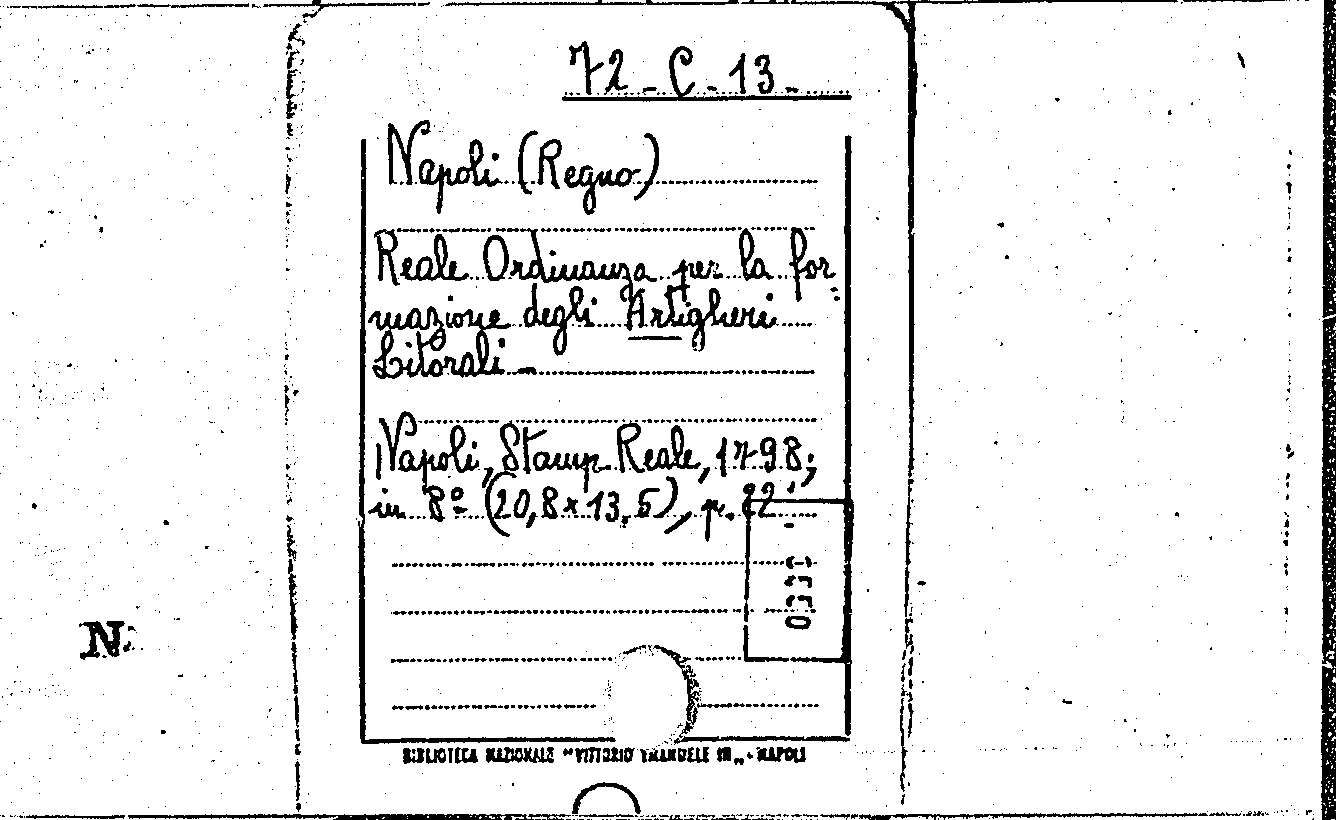 72 - C - 13 -
Napoli (Regno)
Reale Ordinanza per la for-
mazione degli Artiglieri
Litorali -
Napoli, Stamp. Reale, 1798;
in 8º (20,8 x 13,5), p. 22
N.
BIBLIOTECA NAZIONALE "VITTORIO EMANUELE III„ - NAPOLI